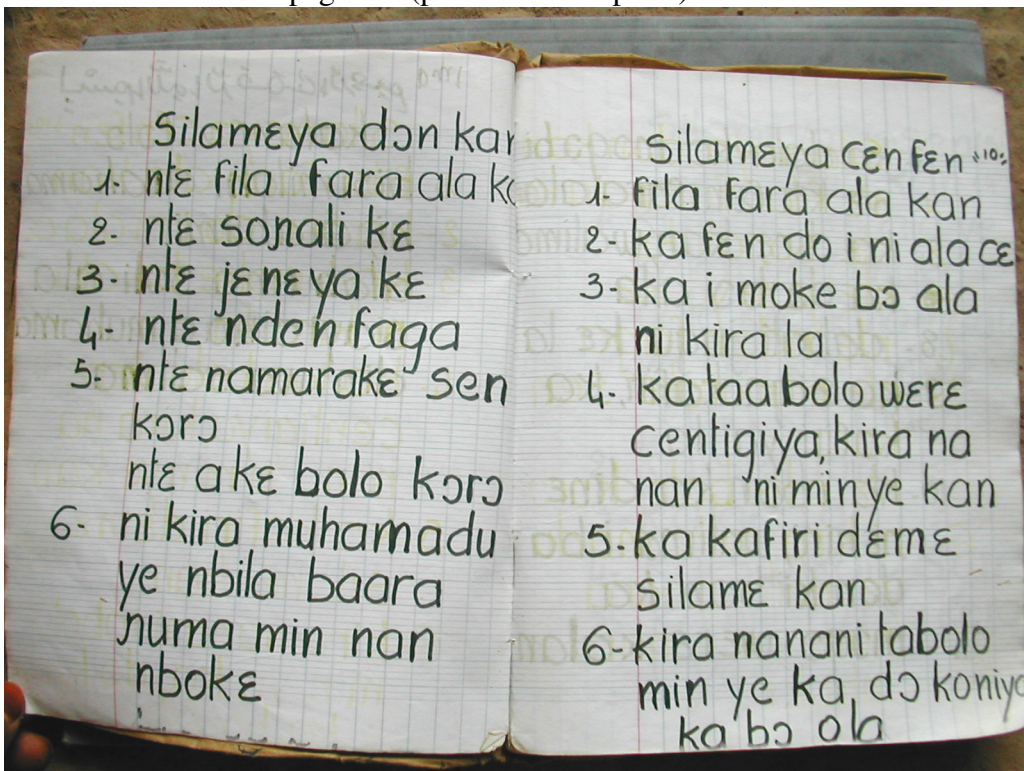 Silamɛya dɔn kan
1. ntɛ fila fara ala
2. ntɛ soɲali kɛ
3. ntɛ jɛnɛya kɛ
4. ntɛ nden faga
5. ntɛ namarakɛ sen
kɔrɔ
ntɛ akɛ bolo kɔrɔ
6. ni kira muhamadu
ye nbila baara
ɲuma min nan
nbokɛ
Silamɛya cɛn fɛn "10"
1. fila fara ala kan
2. ka fɛn do i ni ala cɛ
3. ka i moke bɔ ala
ni kira la
4. ka taa bolo wɛrɛ
centigiya, kira na
nan ni min ye kan
5. ka kafiri dɛmɛ
silamɛ kan
6. kira nanani tabolo
min ye ka, dɔ koniya
ka bɔ ola